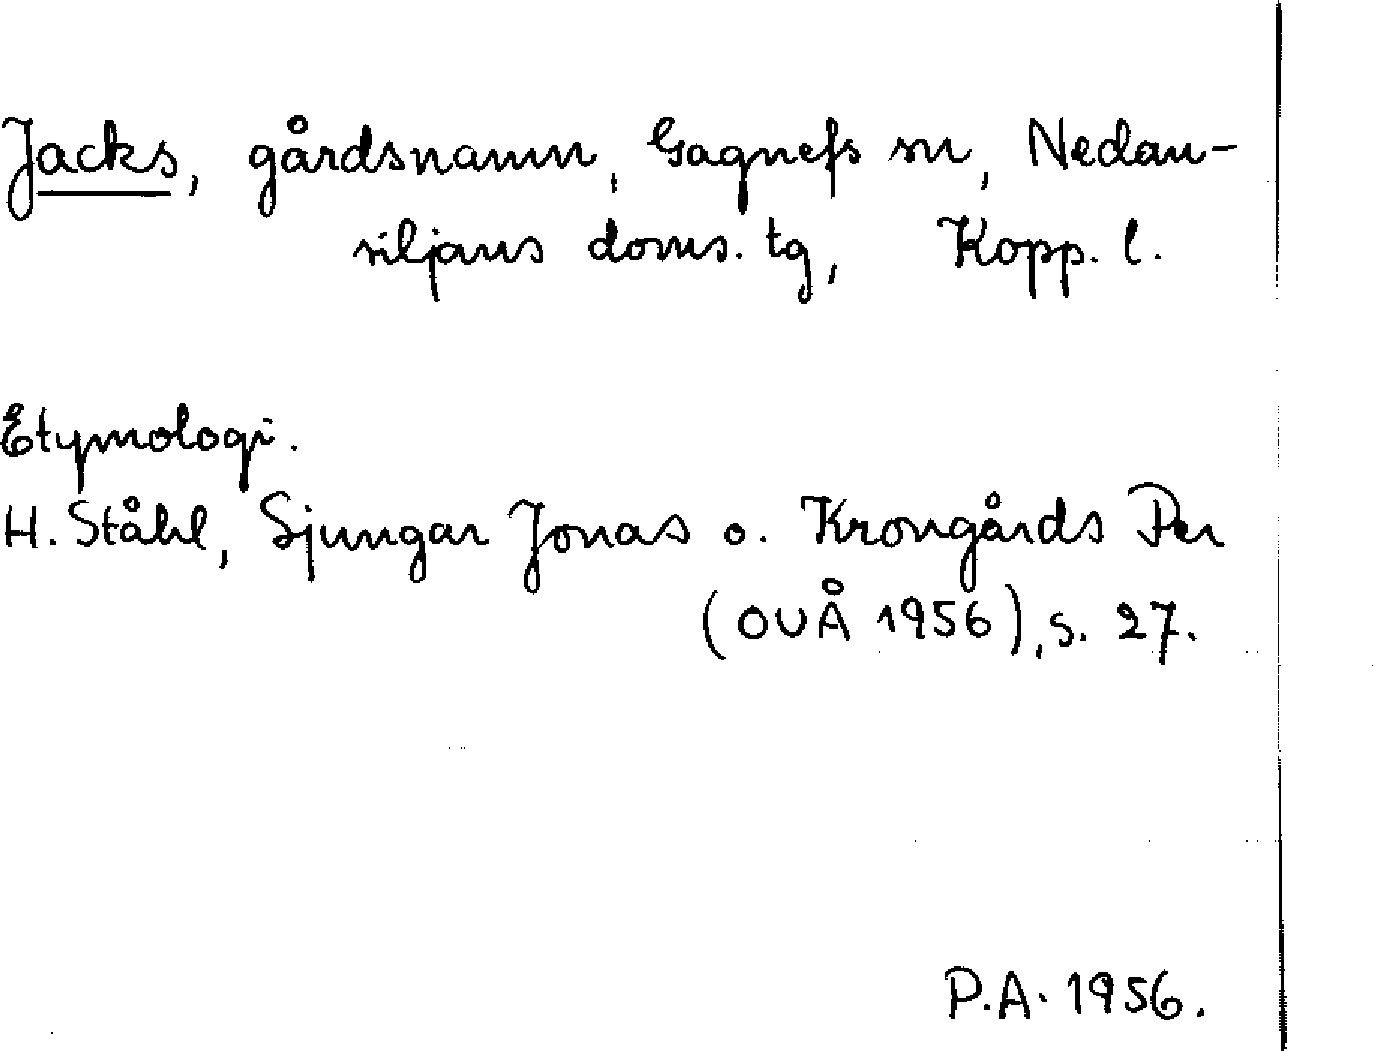 Jacks, gårdsnamn, Gagnefs sn, Nedan-
siljans doms. tg, Kopp. l.
Etymologi.
H. Ståhl, Sjungar Jonas o. Krongårds Per
(OUÅ 1956), s. 27.
P.A. 1956.